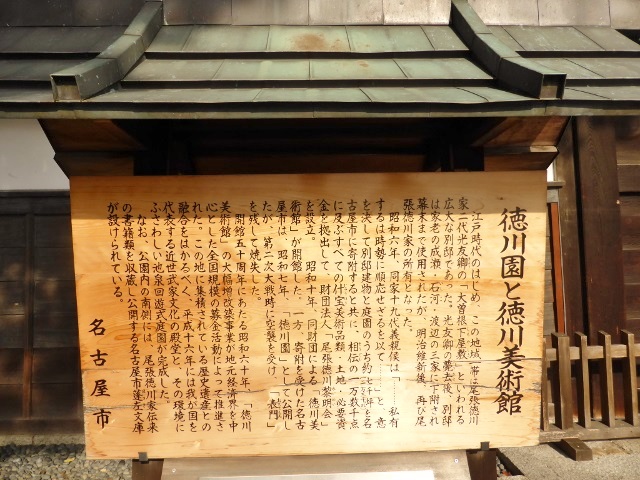 徳川園と徳川美術館
江戸時代のはじめ、この地域一帯は尾張徳川
家二代光友卿の「大曽根下屋敷」といわれる
広大な別邸であった。光友卿の薨去後、別邸
は家老の成瀬、石河、渡辺の三家に下附され
幕末まで使用されたが、明治維新後、再び尾
張徳川家の所有となった。
昭和六年、同家十九代義親侯は「……私有
するは時勢に順応せざるを以て……」と、意
を決して別邸建物と庭園のうち約七千坪を名
古屋市に寄附すると共に、相伝の一万数千点
に及ぶすべての什宝美術品類、土地、必要資
金を拠出して、財団法人「尾張徳川黎明会」
を設立。昭和十年、同財団による「徳川美
術館」が開館した。一方、寄附を受けた名古
屋市は、昭和七年、「徳川園」として公開し
たが、第二次大戦時に空襲を受け、「表門」
を残して焼失した。
開館五十周年にあたる昭和六十年、「徳川
美術館」の大幅増改築事業が地元経済界を中
心とした全国規模の募金活動によって推進さ
れた。この地に集積されている歴史遺産との
融合をはかるべく、平成十六年には我が国を
代表する近世武家文化の殿堂と、その環境に
ふさわしい池泉回遊式庭園が完成した。
なお、公園内の南側には、尾張徳川家伝来
の書籍類を収蔵し公開する名古屋市蓬左文庫
が設けられている。
名古屋市